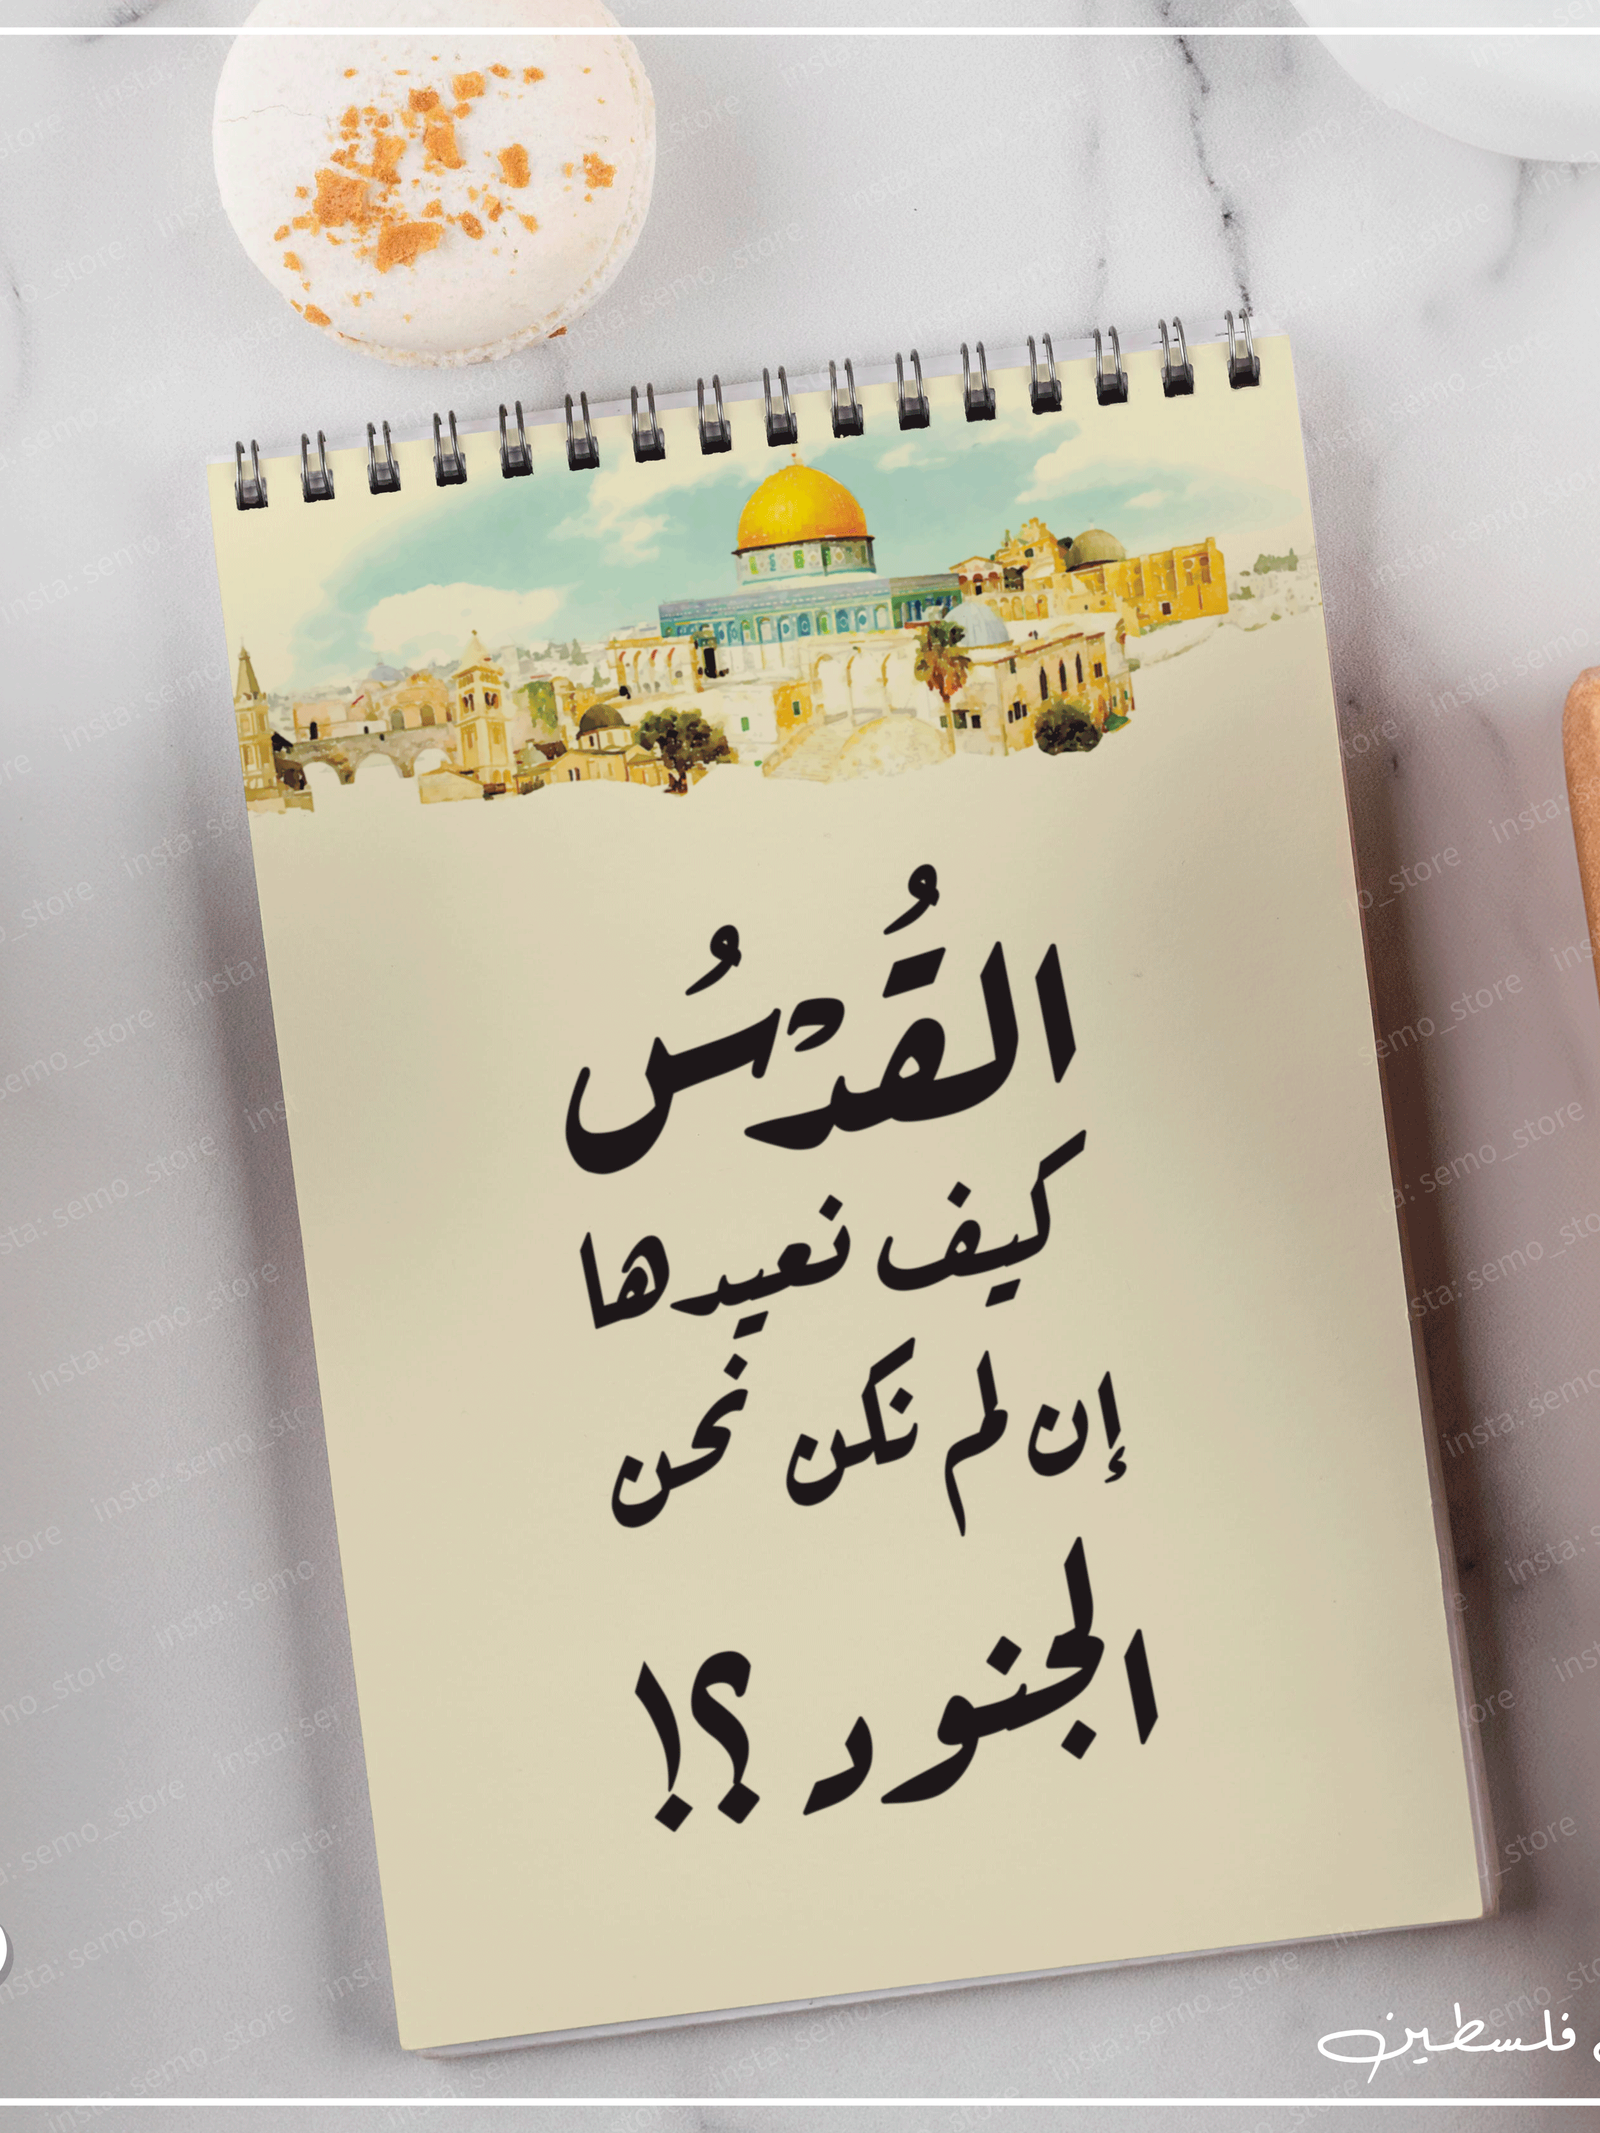 القُدْسُ
كيف نعيدها
إن لم نكن نحن
الجنود ؟!
فلسطين
insta: semo_store